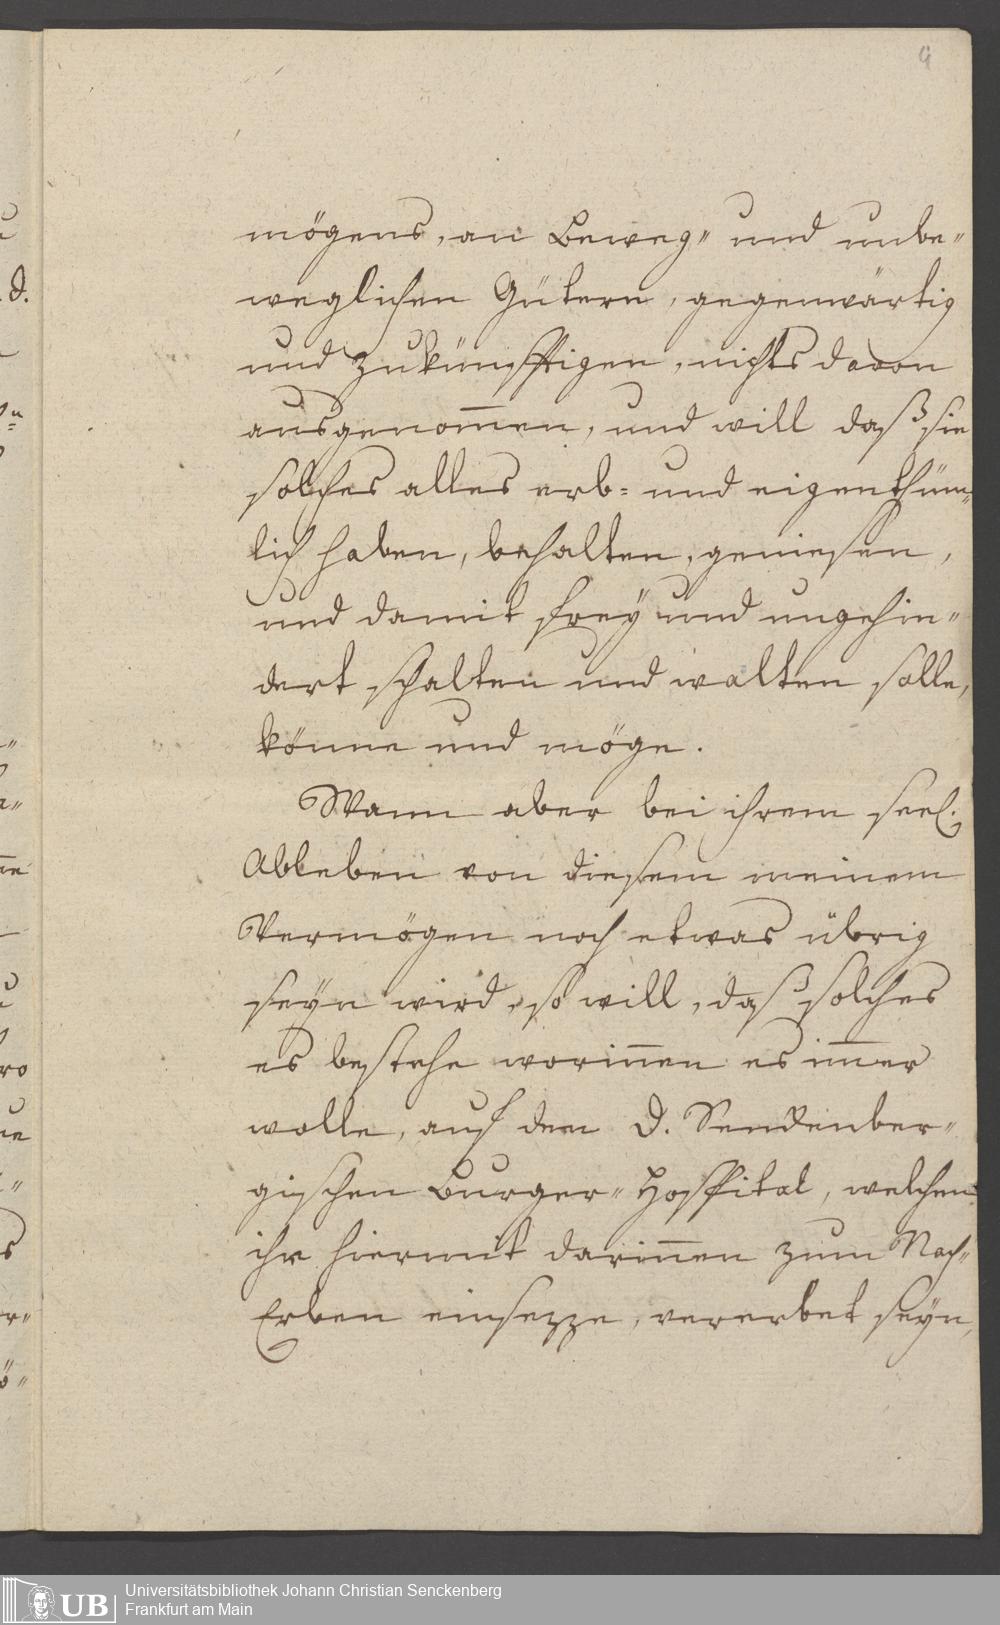 4
mögens, an Beweg" und unbe"
weglichen Gütern, gegenwärtig
und zukünfftigen, nichts davon
ausgenom̅en, und will daß sie
solches alles erb= und eigenthüm"
lich haben, behalten, geniesen,
und damit frey und ungehin"
dert schalten und walten solle,
könne und möge.
Wann aber bei ihrem seel.
Ableben von diesem meinem
Vermögen noch etwas übrig
seyn wird, so will, daß solches
es bestehe worin̅en es im̅er
wolle, auf dem D. Senckenber"
gischen Burger" Hospital, welchen
ihr hiermit darin̅en zum Nach"
Erben einsezze, vererbet seyn,
UB
Universitätsbibliothek Johann Christian Senckenberg
Frankfurt am Main